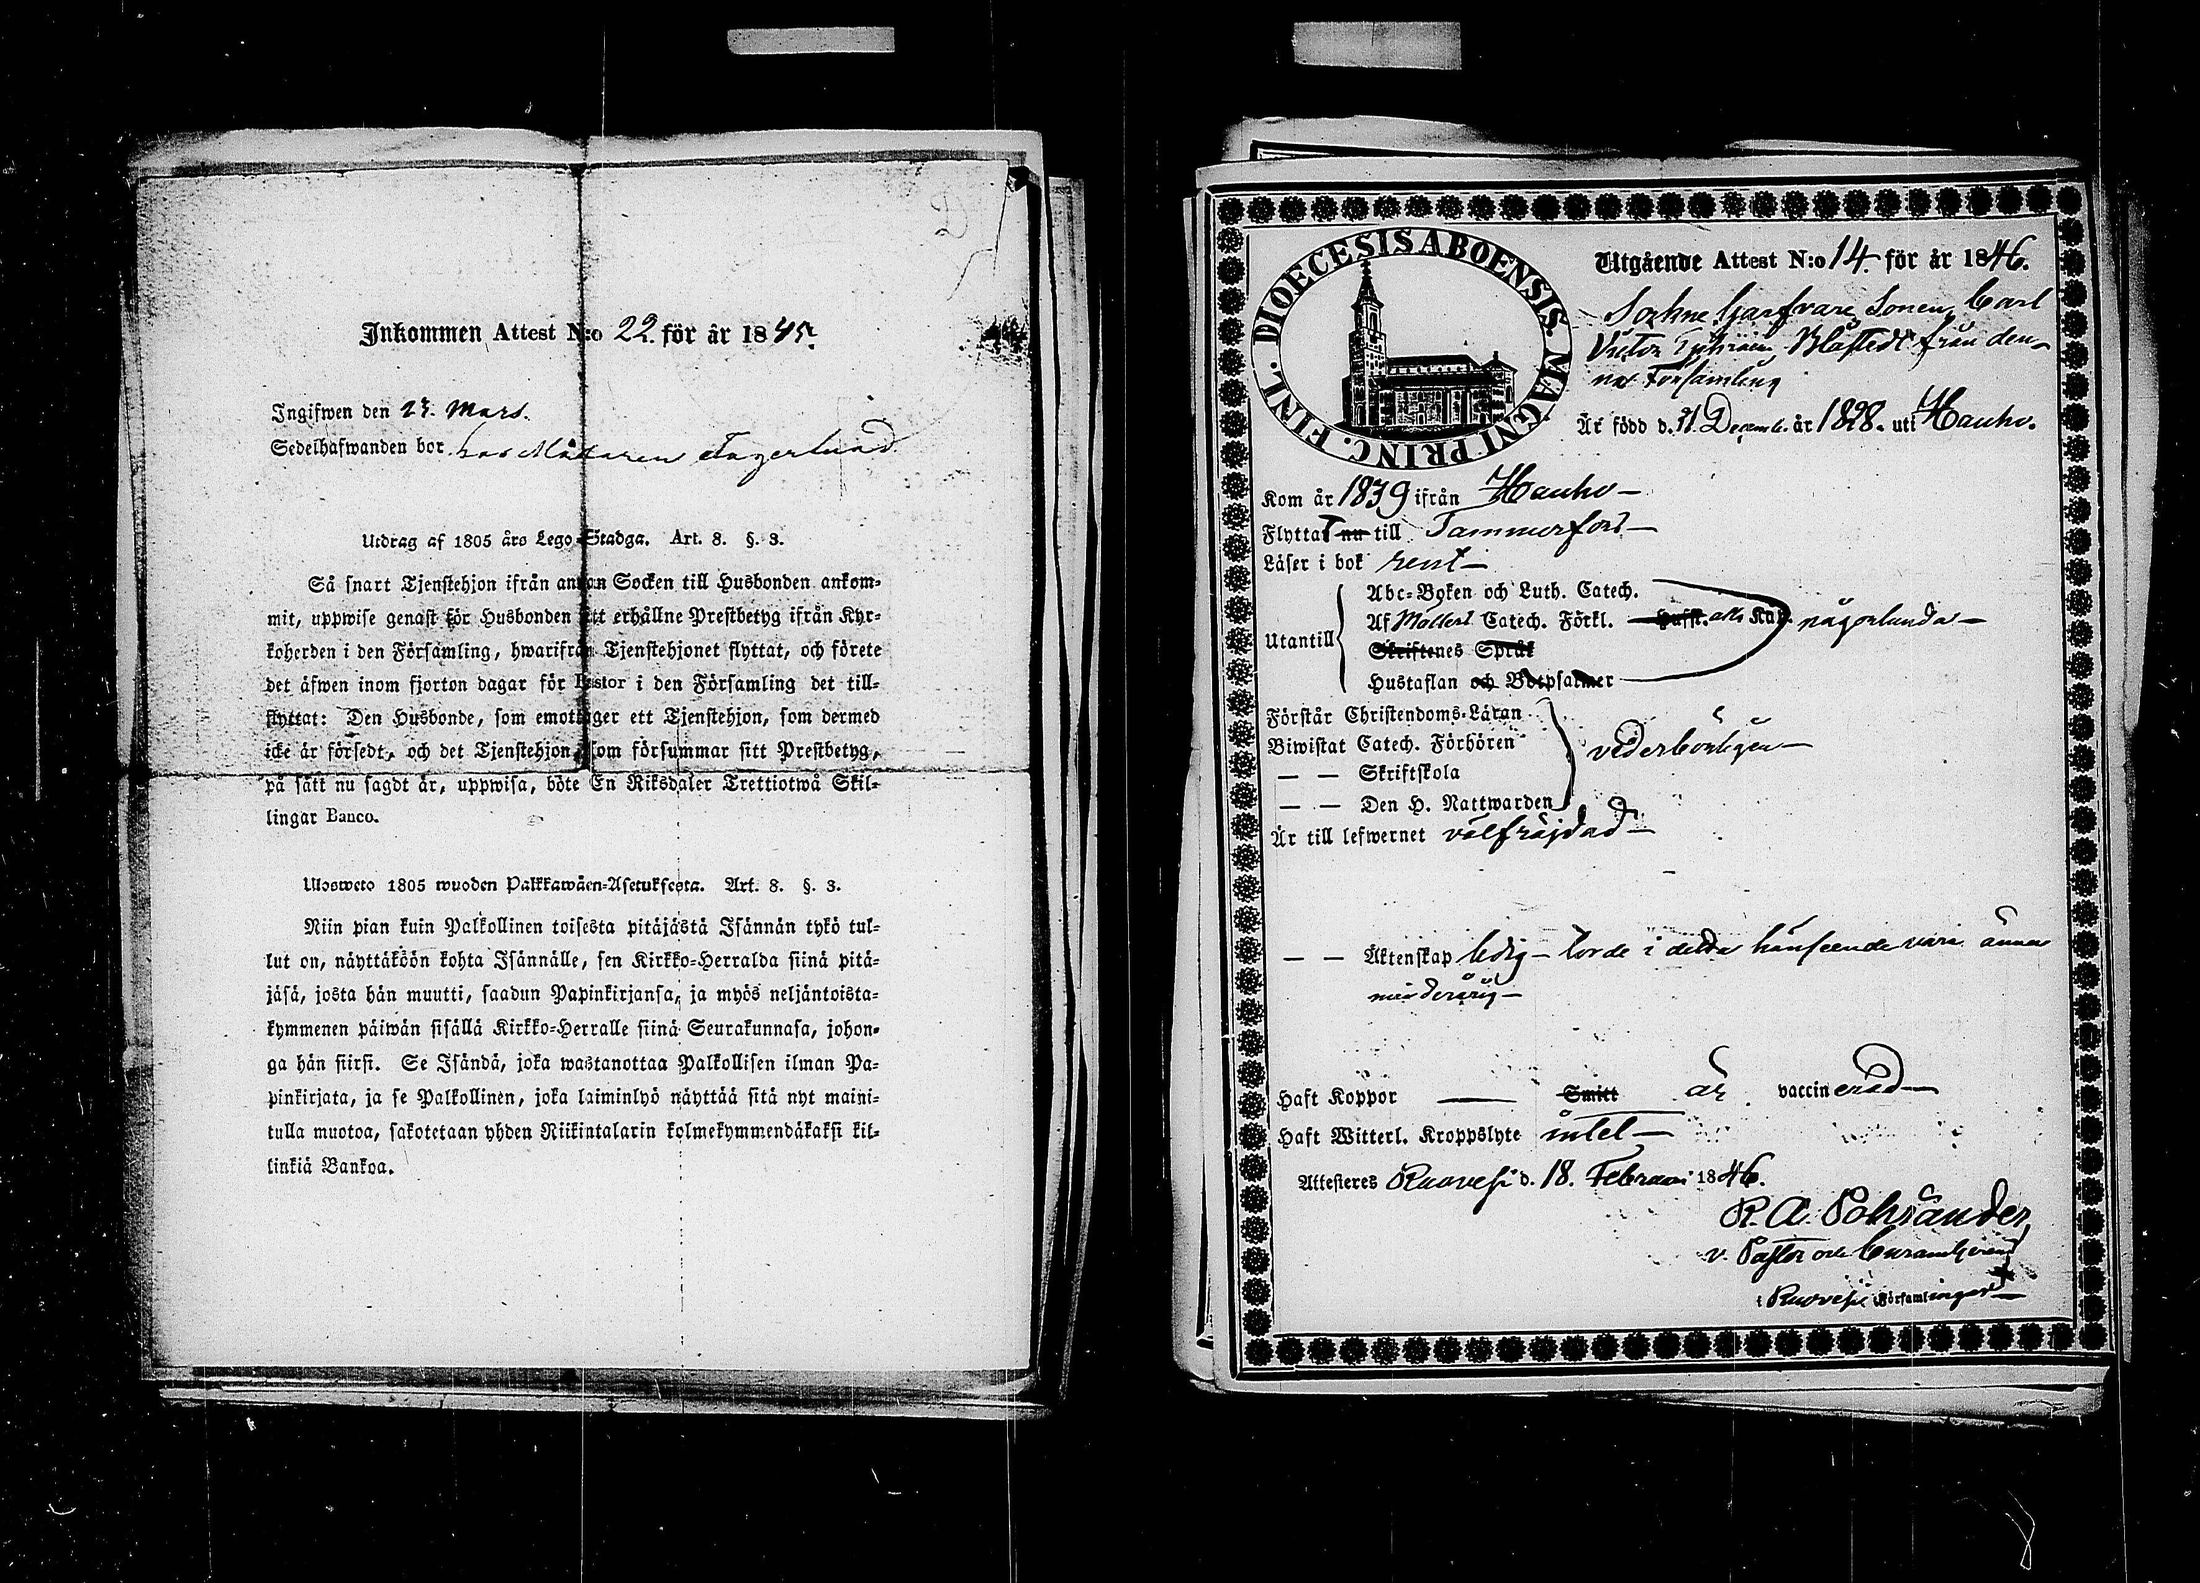 Inkommen Attest N:o 22. för år 1845.
Ingifwen den 23. Mars.
Sedelhafwanden bor hos Målaren Fagerlund
Utdrag af 1805 års Lego-Stadga. Art. 8. §. 3.
Så snart Tjenstehjon ifrån annan Socken till Husbonden ankom-
mit, uppwise genast för Husbonden sitt erhållne Prestbetyg ifrån Kyr-
koherden i den Församling, hwarifrån Tjenstehjonet flyttat, och förete
det äfwen inom fjorton dagar för Pastor i den Församling det till-
flyttat: Den Husbonde, som emottager ett Tjenstehjon, som dermed
icke är försedt, och det Tjenstehjon, som försummar sitt Prestbetyg,
på sätt nu sagdt är, uppwisa, böte En Riksdaler Trettiotwå Skil-
lingar Banco.
Ulosweto 1805 wuoden Palkkawäen-Asetuksesta. Art. 8. §. 3.
Niin pian kuin Palkollinen toisesta pitäjästä Isännän tykö tul-
lut on, näyttäköön kohta Isännälle, sen Kirkko-Herralda siinä pitä-
jäsä, josta hän muutti, saadun Papinkirjansa, ja myös neljäntoista-
kymmenen päiwän sisällä Kirkko-Herralle siinä Seurakunnasa, johon-
ga hän siirsi. Se Isändä, joka wastanottaa Palkollisen ilman Pa-
pinkirjata, ja se Palkollinen, joka laiminlyö näyttää sitä nyt maini-
tulla muotoa, sakotetaan yhden Riikintalarin kolmekymmendäkaksi kil-
linkiä Bankoa.
DIOECESIS ABOENSIS MAGNI PRINC. FINL.
Utgående Attest N:o 14. för år 1846.
Sockne Garfvare Sonen, Carl
Victor Blåstedt från den-
na Församling
Är född d. 31. Decemb. år 1828. uti Hauho.
Kom år 1839 ifrån Hauho—
Flyttat nu till Tammerfors—
Läser i bok rent—
Utantill
Abc-Boken och Luth. Catech.
Af Catech. Förkl. någorlunda—
Skriftenes Språk
Hustaflan och Botpsalmer
Förstår Christendoms-Läran
Biwistat Catech. Förhören vederbörligen—
— — Skriftskola
— — Den H. Nattwarden
Är till lefwernet välfräjdad—
— — Äktenskap ledig— torde i detta hänseende vara ännu
minderårig—
Haft Koppor — Smitt är vaccinerad—
Haft Witterl. Kroppslyte intet—
Attesteres Ruovesi d. 18. Februari 1846.
R. A. Pohjander,
v. Pastor och
i Ruovesi Församlingar—